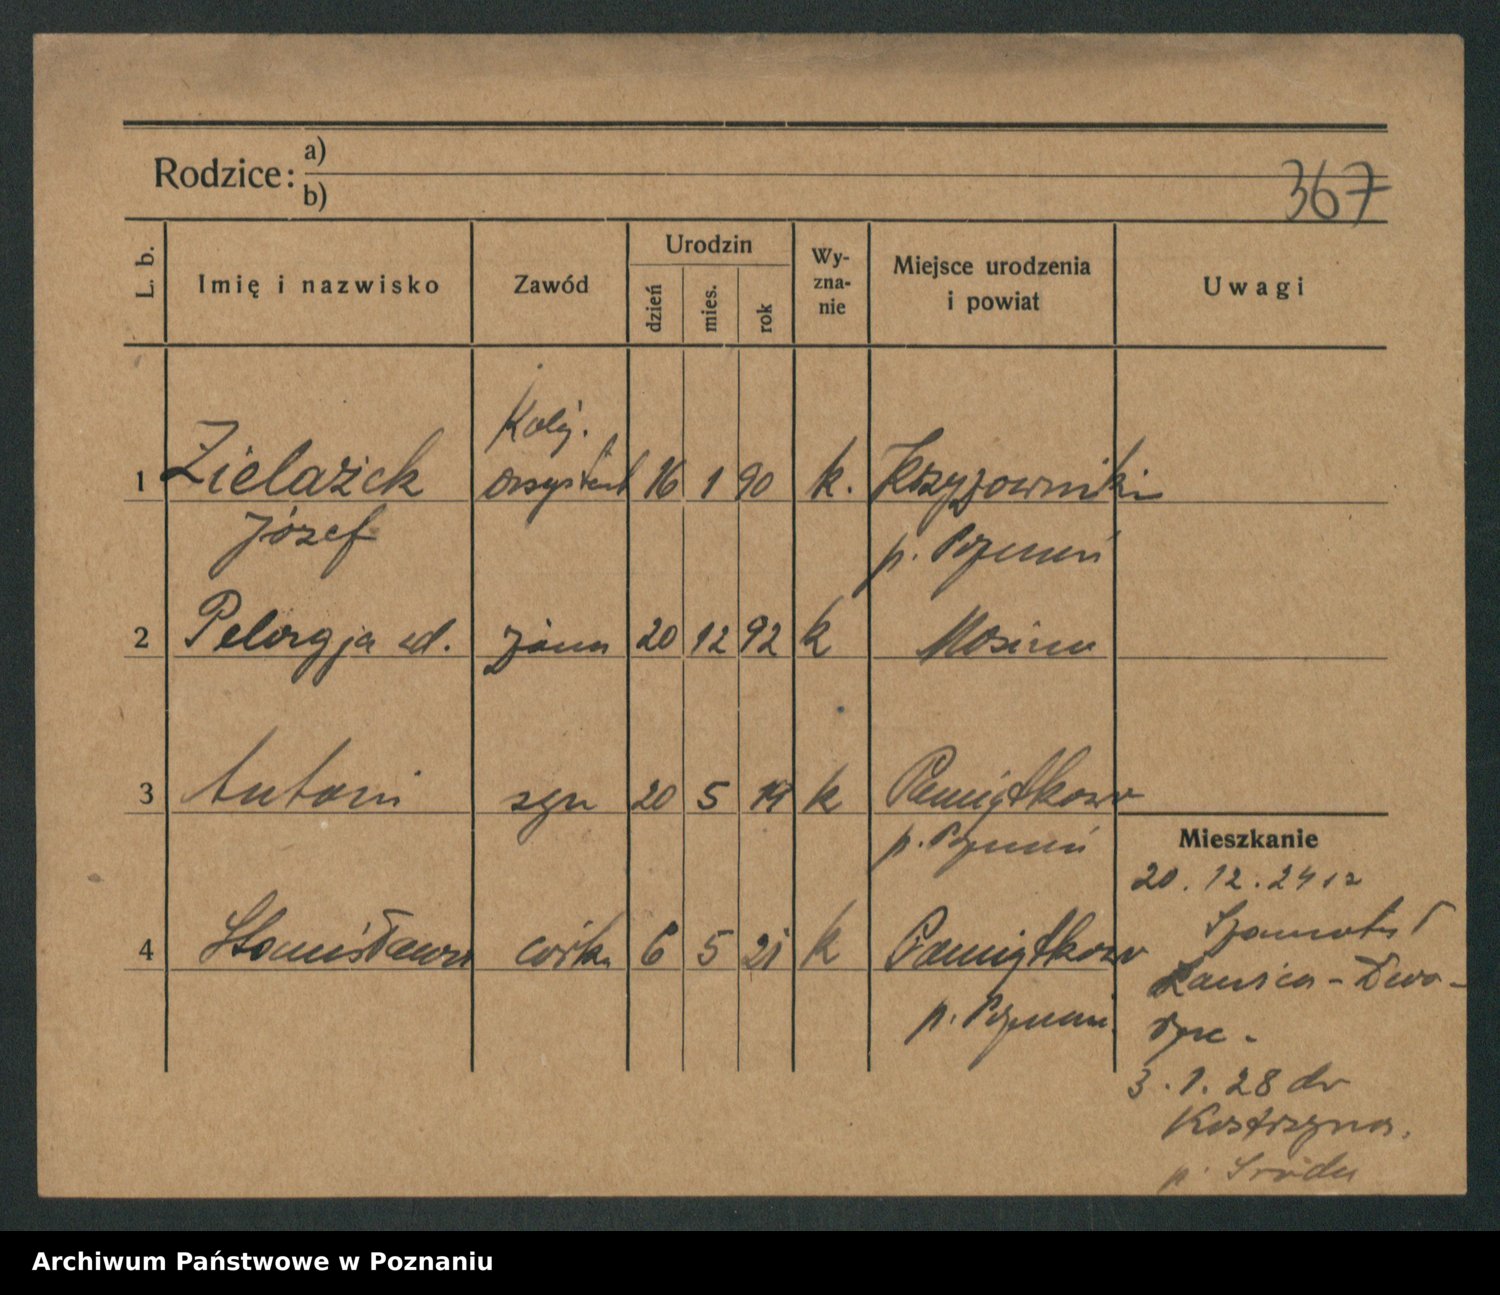 Rodzice: a)
b)
367
L. b.
Imię i nazwisko
Zawód
Urodzin
dzień
mies.
rok
Wy-
zna-
nie
Miejsce urodzenia
i powiat
Uwagi
Kolej.
1 Zielazick asystent 16 1 90 k. Krzyżowniki
Józef p. Poznań
2 Pelagja ud. żona 20 12 92 k Mosina
3 Antoni syn 20 5 19 k Pamiątkowo
p. Poznań
4 Stanisława córka 6 5 21 k Pamiątkowo
p. Poznań.
Mieszkanie
20. 12. 24 iz
3. 1. 28 do
Kostrzyna.
p. Środa
Archiwum Państwowe w Poznaniu